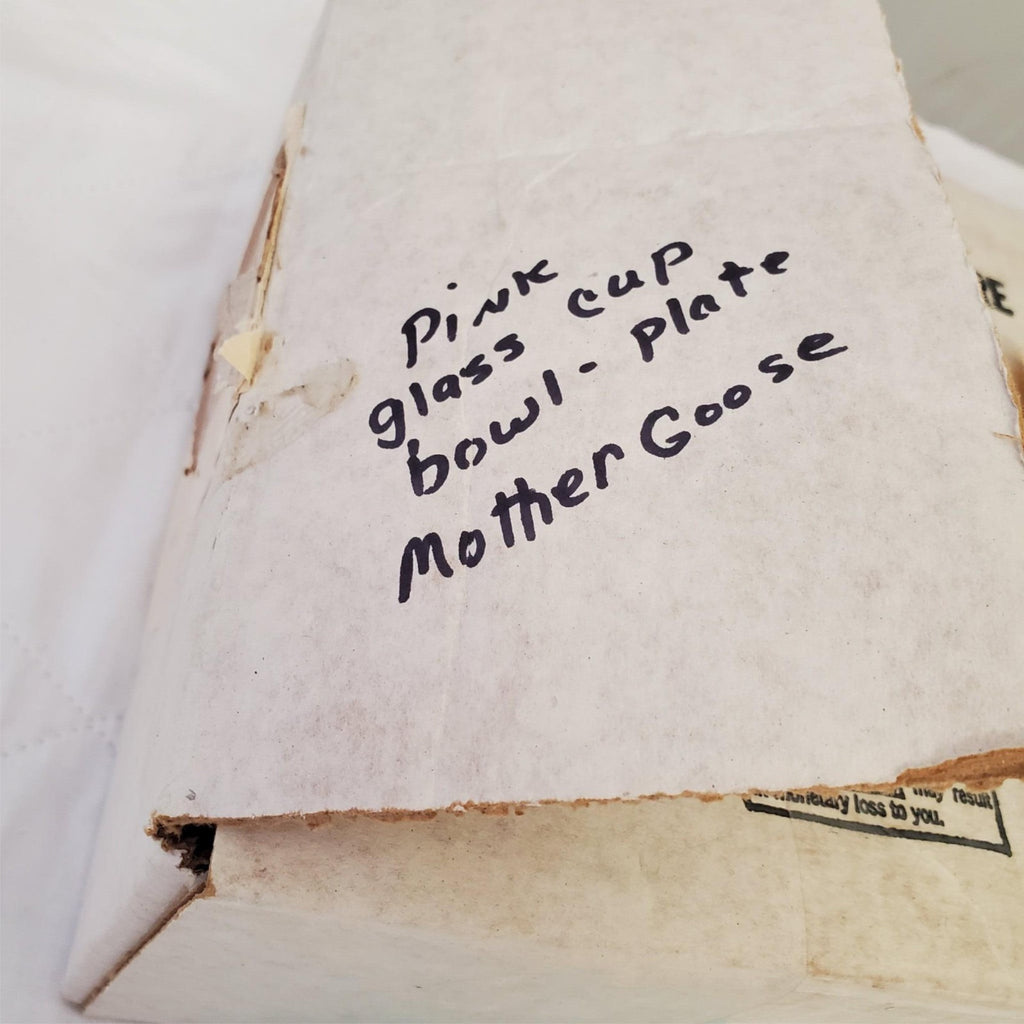 Pink
glass cup
bowl - plate
Mother Goose
RE
may result
monetary loss to you.